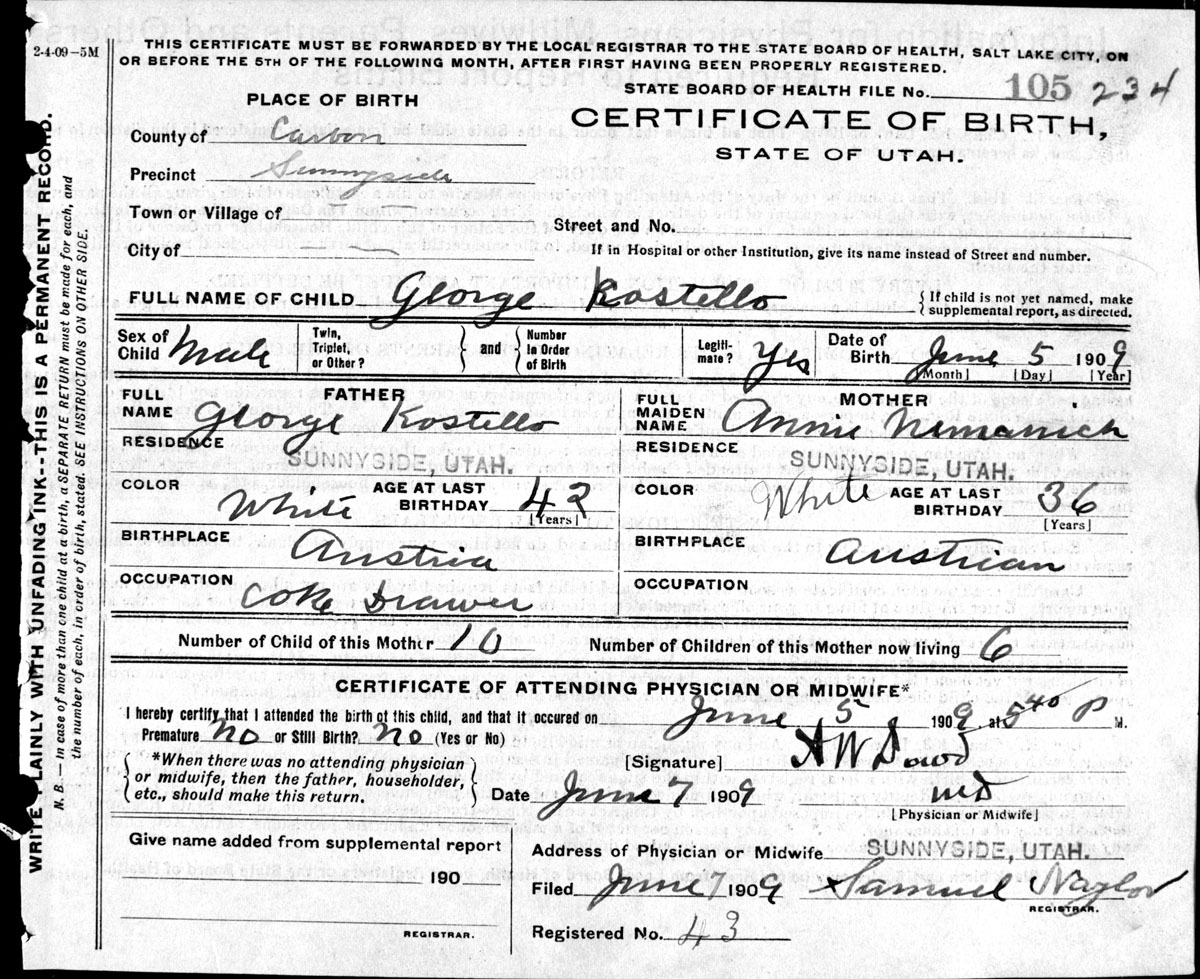 2-4-09-5M
THIS CERTIFICATE MUST BE FORWARDED BY THE LOCAL REGISTRAR TO THE STATE BOARD OF HEALTH, SALT LAKE CITY, ON
OR BEFORE THE 5TH OF THE FOLLOWING MONTH, AFTER FIRST HAVING BEEN PROPERLY REGISTERED.
STATE BOARD OF HEALTH FILE No. 105 234
PLACE OF BIRTH
CERTIFICATE OF BIRTH,
STATE OF UTAH.
County of Carbon
Precinct Sunnyside
Town or Village of
Street and No.
City of
If in Hospital or other Institution, give its name instead of Street and number.
FULL NAME OF CHILD George Kostello
{ If child is not yet named, make
supplemental report, as directed.
Sex of Child Male
Twin, Triplet, or Other? } and { Number in Order of Birth
Legiti-mate? Yes
Date of Birth June 5 1909
[Month] [Day] [Year]
FATHER
FULL NAME George Kostello
RESIDENCE
SUNNYSIDE, UTAH.
COLOR White
AGE AT LAST BIRTHDAY 42
[Years]
BIRTHPLACE Austria
OCCUPATION
Coke Drawer
MOTHER
FULL MAIDEN NAME Annie Nemanich
RESIDENCE
SUNNYSIDE, UTAH.
COLOR White
AGE AT LAST BIRTHDAY 36
[Years]
BIRTHPLACE Austrian
OCCUPATION
Number of Child of this Mother 10
Number of Children of this Mother now living 6
CERTIFICATE OF ATTENDING PHYSICIAN OR MIDWIFE*
I hereby certify that I attended the birth of this child, and that it occured on June 5 1909, at 5 40 P M.
Premature No or Still Birth? No (Yes or No)
*When there was no attending physician
or midwife, then the father, householder,
etc., should make this return.
[Signature] A W Dowd
Date June 7 1909 MD
[Physician or Midwife]
Give name added from supplemental report
190
REGISTRAR.
Address of Physician or Midwife SUNNYSIDE, UTAH.
Filed June 7 1909 Samuel Naylor
REGISTRAR.
Registered No. 43
WRITE PLAINLY WITH UNFADING INK--THIS IS A PERMANENT RECORD.
N. B. — In case of more than one child at a birth, a SEPARATE RETURN must be made for each, and
the number of each, in order of birth, stated. SEE INSTRUCTIONS ON OTHER SIDE.